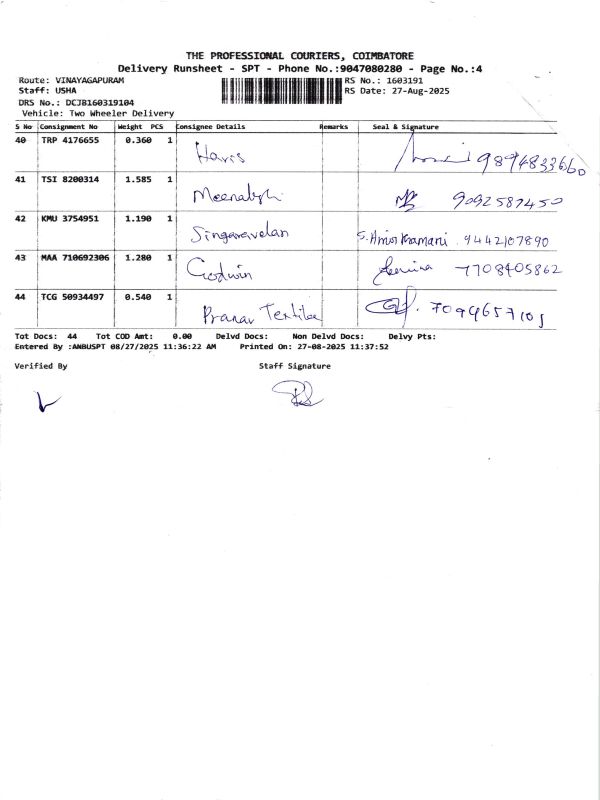 THE PROFESSIONAL COURIERS, COIMBATORE
Delivery Runsheet - SPT - Phone No.:9047080280 - Page No.:4
Route: VINAYAGAPURAM RS No.: 1603191
Staff: USHA RS Date: 27-Aug-2025
DRS No.: DCJB160319104
Vehicle: Two Wheeler Delivery
S No Consignment No Weight PCS Consignee Details Remarks Seal & Signature
40 TRP 4176655 0.360 1 Haris 9894833660
41 TSI 8200314 1.585 1 Meenakshi 9092587450
42 KMU 3754951 1.190 1 Singaravelan 9442107890
43 MAA 710692306 1.280 1 Godwin 7708405862
44 TCG 50934497 0.540 1 Pranav Textile
Tot Docs: 44 Tot COD Amt: 0.00 Delvd Docs: Non Delvd Docs: Delvy Pts:
Entered By :ANBUSPT 08/27/2025 11:36:22 AM Printed On: 27-08-2025 11:37:52
Verified By Staff Signature